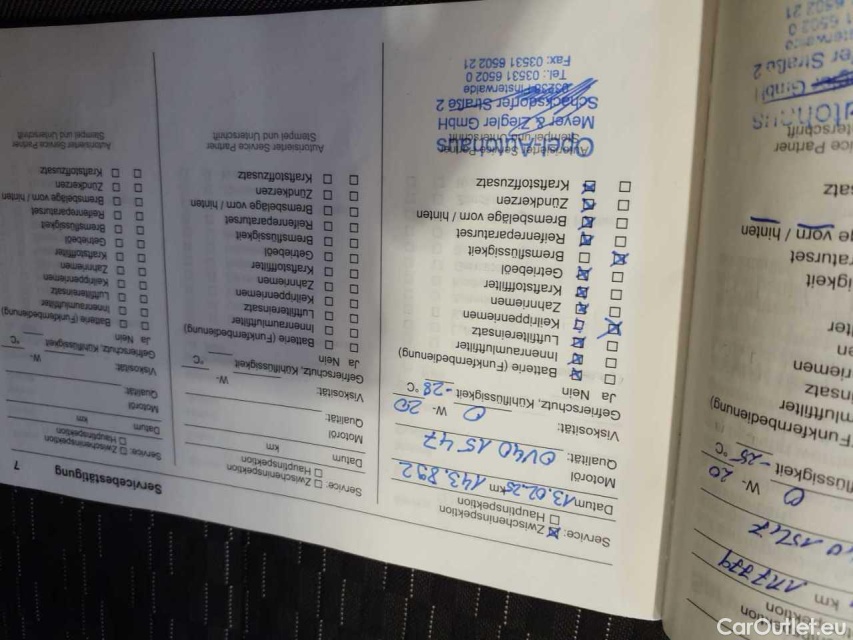 km 117779
0 W- 20
-25 °C
Funkfernbedienung)
vorn / hinten
Service Partner
Autohaus
GmbH
Straße 2
6502 0
Service: Zwischeninspektion
Hauptinspektion
Datum 13.02.25 km 143.892
Motoröl
Qualität: OV40 1547
Viskosität: 0 W- 20
Gefrierschutz, Kühlflüssigkeit -28 °C
Ja Nein
Batterie (Funkfernbedienung)
Innenraumluftfilter
Luftfiltereinsatz
Keilrippenriemen
Zahnriemen
Kraftstofffilter
Getriebeöl
Bremsflüssigkeit
Reifenreparaturset
Bremsbeläge vorn / hinten
Zündkerzen
Kraftstoffzusatz
Autorisierter Service Partner
Stempel und Unterschrift
Opel-Autohaus
Meyer & Ziegler GmbH
Schacksdorfer Straße 2
03238 Finsterwalde
Tel.: 03531 6502 0
Fax: 03531 6502 21
Service: Zwischeninspektion
Hauptinspektion
Datum km
Motoröl
Qualität:
Viskosität: W-
Gefrierschutz, Kühlflüssigkeit °C
Ja Nein
Batterie (Funkfernbedienung)
Innenraumluftfilter
Luftfiltereinsatz
Keilrippenriemen
Zahnriemen
Kraftstofffilter
Getriebeöl
Bremsflüssigkeit
Reifenreparaturset
Bremsbeläge vorn / hinten
Zündkerzen
Kraftstoffzusatz
Autorisierter Service Partner
Stempel und Unterschrift
Servicebestätigung 7
Service: Zwischeninspektion
Hauptinspektion
Datum km
Motoröl
Qualität:
Viskosität: W-
Gefrierschutz, Kühlflüssigkeit °C
Ja Nein
Batterie (Funkfernbedienung)
Innenraumluftfilter
Luftfiltereinsatz
Keilrippenriemen
Zahnriemen
Kraftstofffilter
Getriebeöl
Bremsflüssigkeit
Reifenreparaturset
Bremsbeläge vorn / hinten
Zündkerzen
Kraftstoffzusatz
Autorisierter Service Partner
Stempel und Unterschrift
CarOutlet.eu